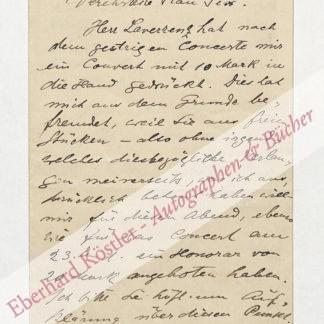 Verehrteste Frau
Herr Laverrenz hat nach
dem gestrigen Concerte mir
ein Couvert mit 10 Mark in
die Hand gedrückt. Dies hat
mich aus dem Grunde be-
fremdet, weil Sie aus freien
Stücken – also ohne irgend
welches diesbezügliche Verlan-
gen meinerseits
drücklich haben
mir für diesen Abend, eben
wie für das Concert am
23. ein Honorar von
20 Mark angeboten haben.
Ich bitte Sie höfl. um Auf-
klärung über diesen Punkt
Eberhard Köstler - Autographen & Bücher